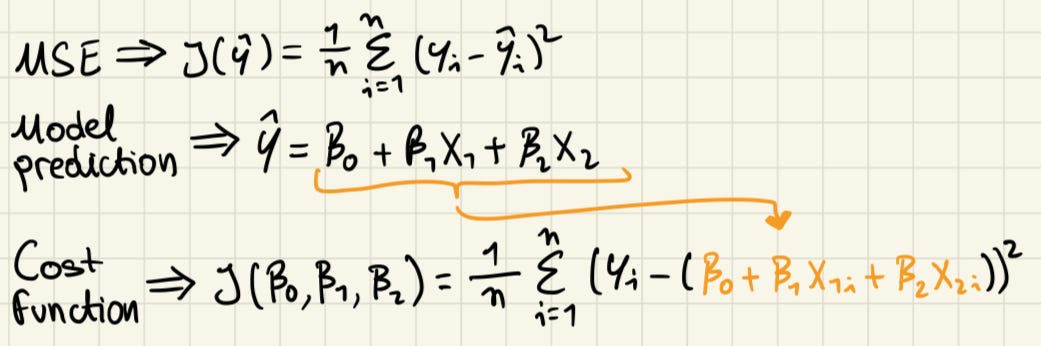 MSE ⇒ J(ŷ) = 1/n Σ_{i=1}^{n} (yᵢ - ŷᵢ)²
Model prediction ⇒ ŷ = β₀ + β₁X₁ + β₂X₂
Cost function ⇒ J(β₀, β₁, β₂) = 1/n Σ_{i=1}^{n} (yᵢ - (β₀ + β₁X₁ᵢ + β₂X₂ᵢ))²